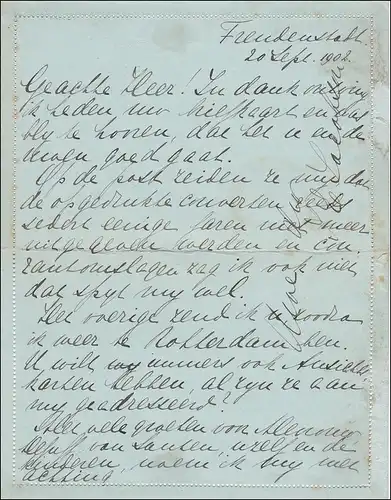 Freudenstadt
20 Sept. 1902.
Geachte Heer! In dank ontving
ik heden uw briefkaart en was
bly te hooren, dat het u en de
uwen goed gaat.
Op de post zeiden ze my dat
de opgedrukte couverten reeds
sedert eenige jaren niet meer
uitgegeven werden en
zag ik ook niet
dat spyt my wel.
Het overige zend ik u zoodra
ik weer te Rotterdam ben.
U wilt my immers ook Ansichts
karten hebben, al zyn ze aan
my geadresseerd?
Met vele groeten voor Mevrouw
van Santen, uzelf en de
kinderen, noem ik my met
achting